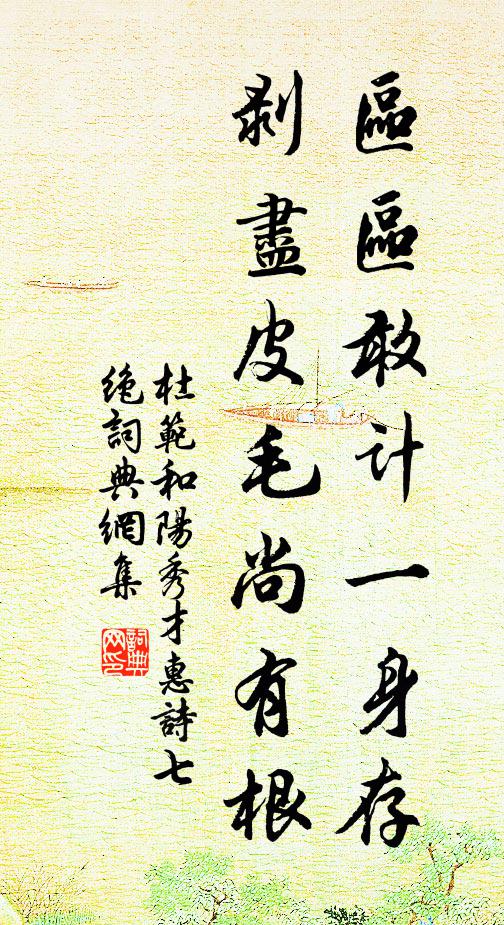 區區敢计一身存
剥盡皮毛尚有根
杜範和陽秀才惠詩七
絶詞典網集
詞典网印